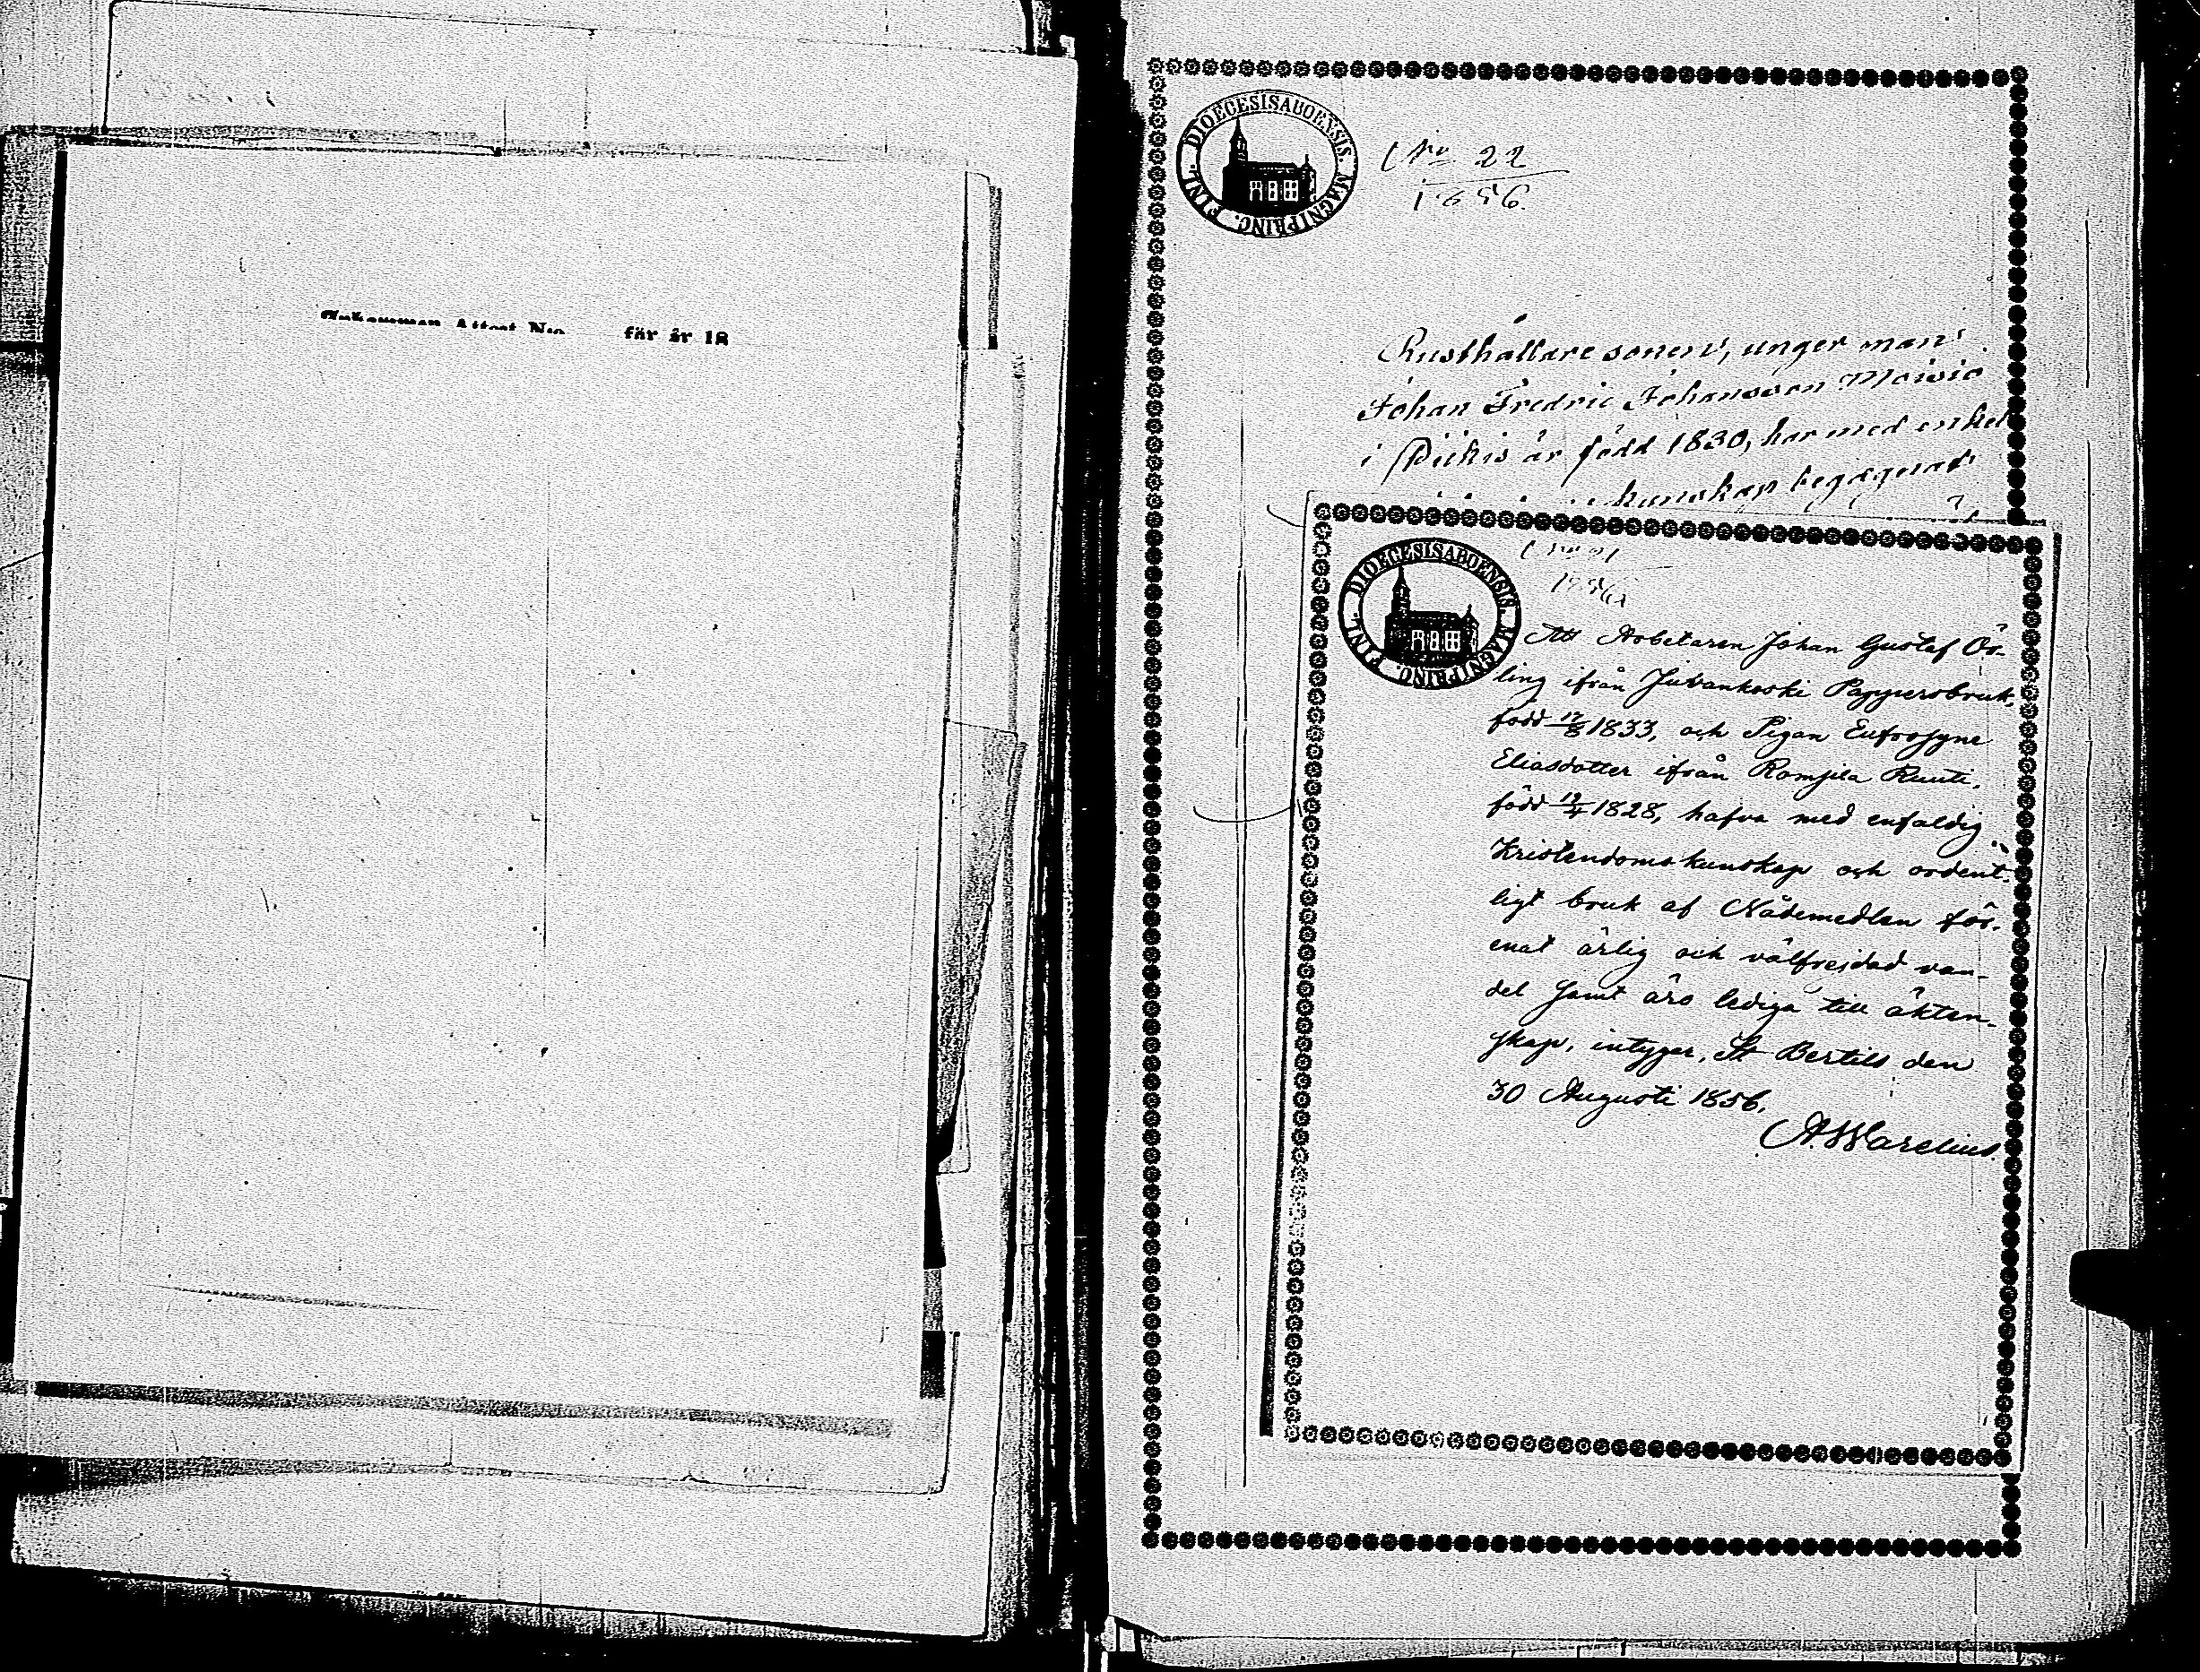 Inkomman Attest N:o för år 18
DIOECESIS ABOENSIS. MAGNI PRINC. FINL.
No 22
1856.
Rusthållare sonen, unger man
Johan Fredric Johansson Moisio
i Pickis är född 1830, har med enkel
kunskap begagnat
DIOECESIS ABOENSIS. MAGNI PRINC. FINL.
No 21
1856
Att Arbetaren Johan Gustaf Ör-
ling ifrån Juvankoski Pappersbruk,
född 12/8 1833, och Pigan Eufrosyne
Eliasdotter ifrån Romsila Ruuti,
född 19/4 1828, hafva med enfaldig
Kristendoms kunskap och ordent-
ligt bruk af Nådemedlen för-
enat ärlig och välfrejdad van-
del samt äro lediga till äkten-
skap, intygar, St Bertils den
30 Augusti 1856.
A. Warelius.